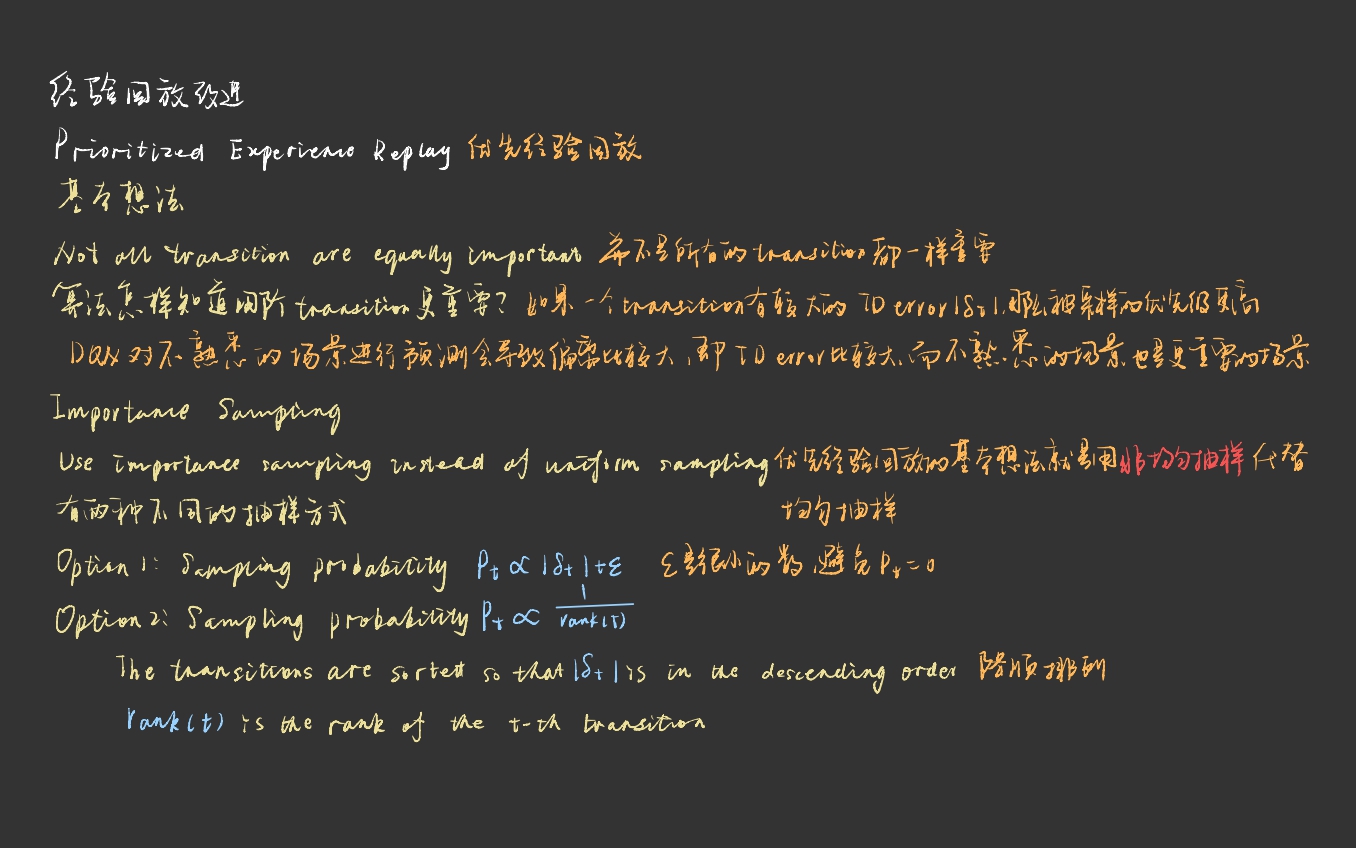 经验回放改进
Prioritized Experience Replay 优先经验回放
基本想法
Not all transition are equally important 并不是所有的transition都一样重要
算法怎样知道哪个transition更重要? 如果一个transition有较大的TD error|δt|,那么被采样的优先级更高
DQN对不熟悉的场景进行预测会导致偏离比较大,即TD error比较大,而不熟悉的场景也是更重要的场景
Importance Sampling
Use importance sampling instead of uniform sampling 优先经验回放的基本想法就是用非均匀抽样代替
均匀抽样
有两种不同的抽样方式
Option1: Sampling probability Pt ∝ |δt|+ε ε是很小的数,避免Pt=0
Option2: Sampling probability Pt ∝ 1/rank(t)
The transitions are sorted so that |δt| is in the descending order 降顺排列
rank(t) is the rank of the t-th transition